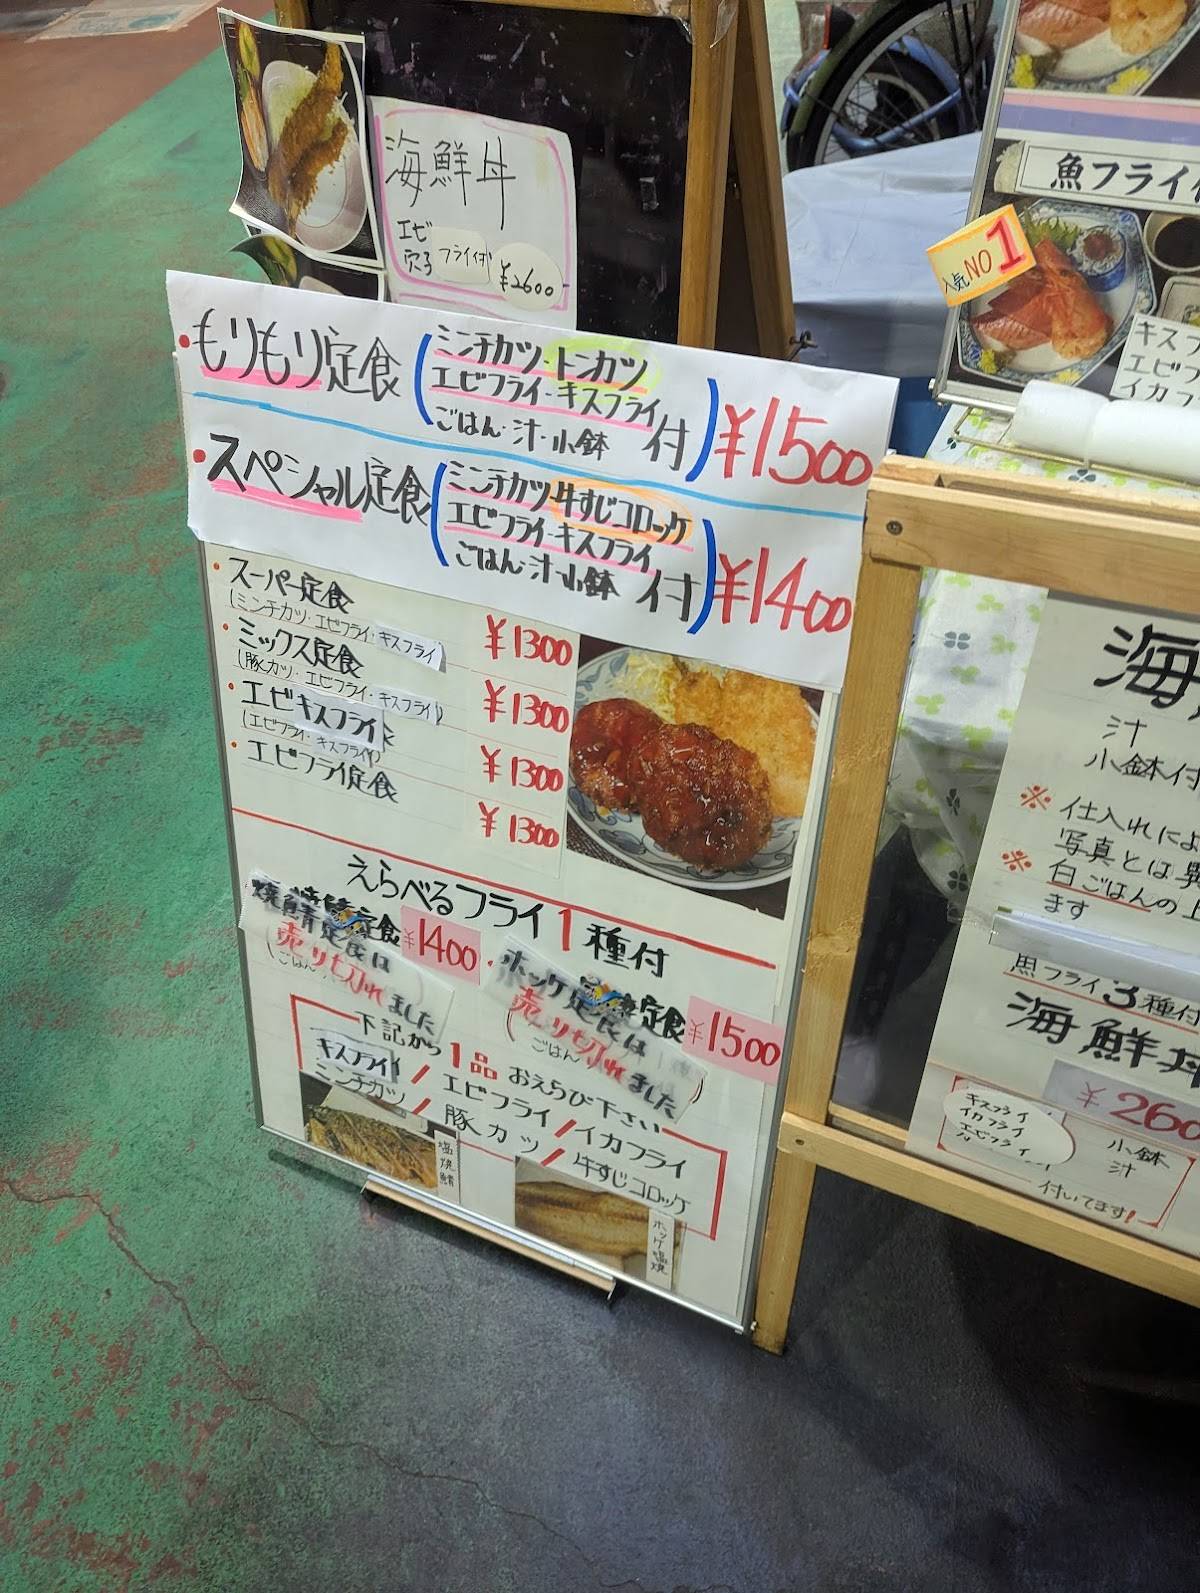 海鮮丼
エビ
穴子 フライ付
¥2600
・もりもり定食
(ミンチカツ・トンカツ
エビフライ・キスフライ
ごはん・汁・小鉢 付)
¥1500
・スペシャル定食
(ミンチカツ・牛すじコロッケ
エビフライ・キスフライ
ごはん・汁・小鉢 付)
¥1400
・スーパー定食
(ミンチカツ・エビフライ・キスフライ)
¥1300
・ミックス定食
(豚カツ・エビフライ・キスフライ)
¥1300
・エビキスフライ
(エビフライ・キスフライ)
¥1300
・エビフライ定食
¥1300
えらべるフライ1種付
定食 ¥1400
焼鯖定食は
売り切れました
定食 ¥1500
ホッケ定食は
売り切れました
下記から1品おえらび下さい
キスフライ/エビフライ/イカフライ
ミンチカツ/豚カツ/牛すじコロッケ
塩焼鯖
ホッケ塩焼
魚フライ
人気NO1
キスフ
エビフ
イカフ
海
汁
小鉢付
※仕入れによ
写真とは異
※白ごはんの上
ます
魚フライ3種付
海鮮丼
¥260
キスフライ
イカフライ
エビフライ
小鉢
汁
付いてます!